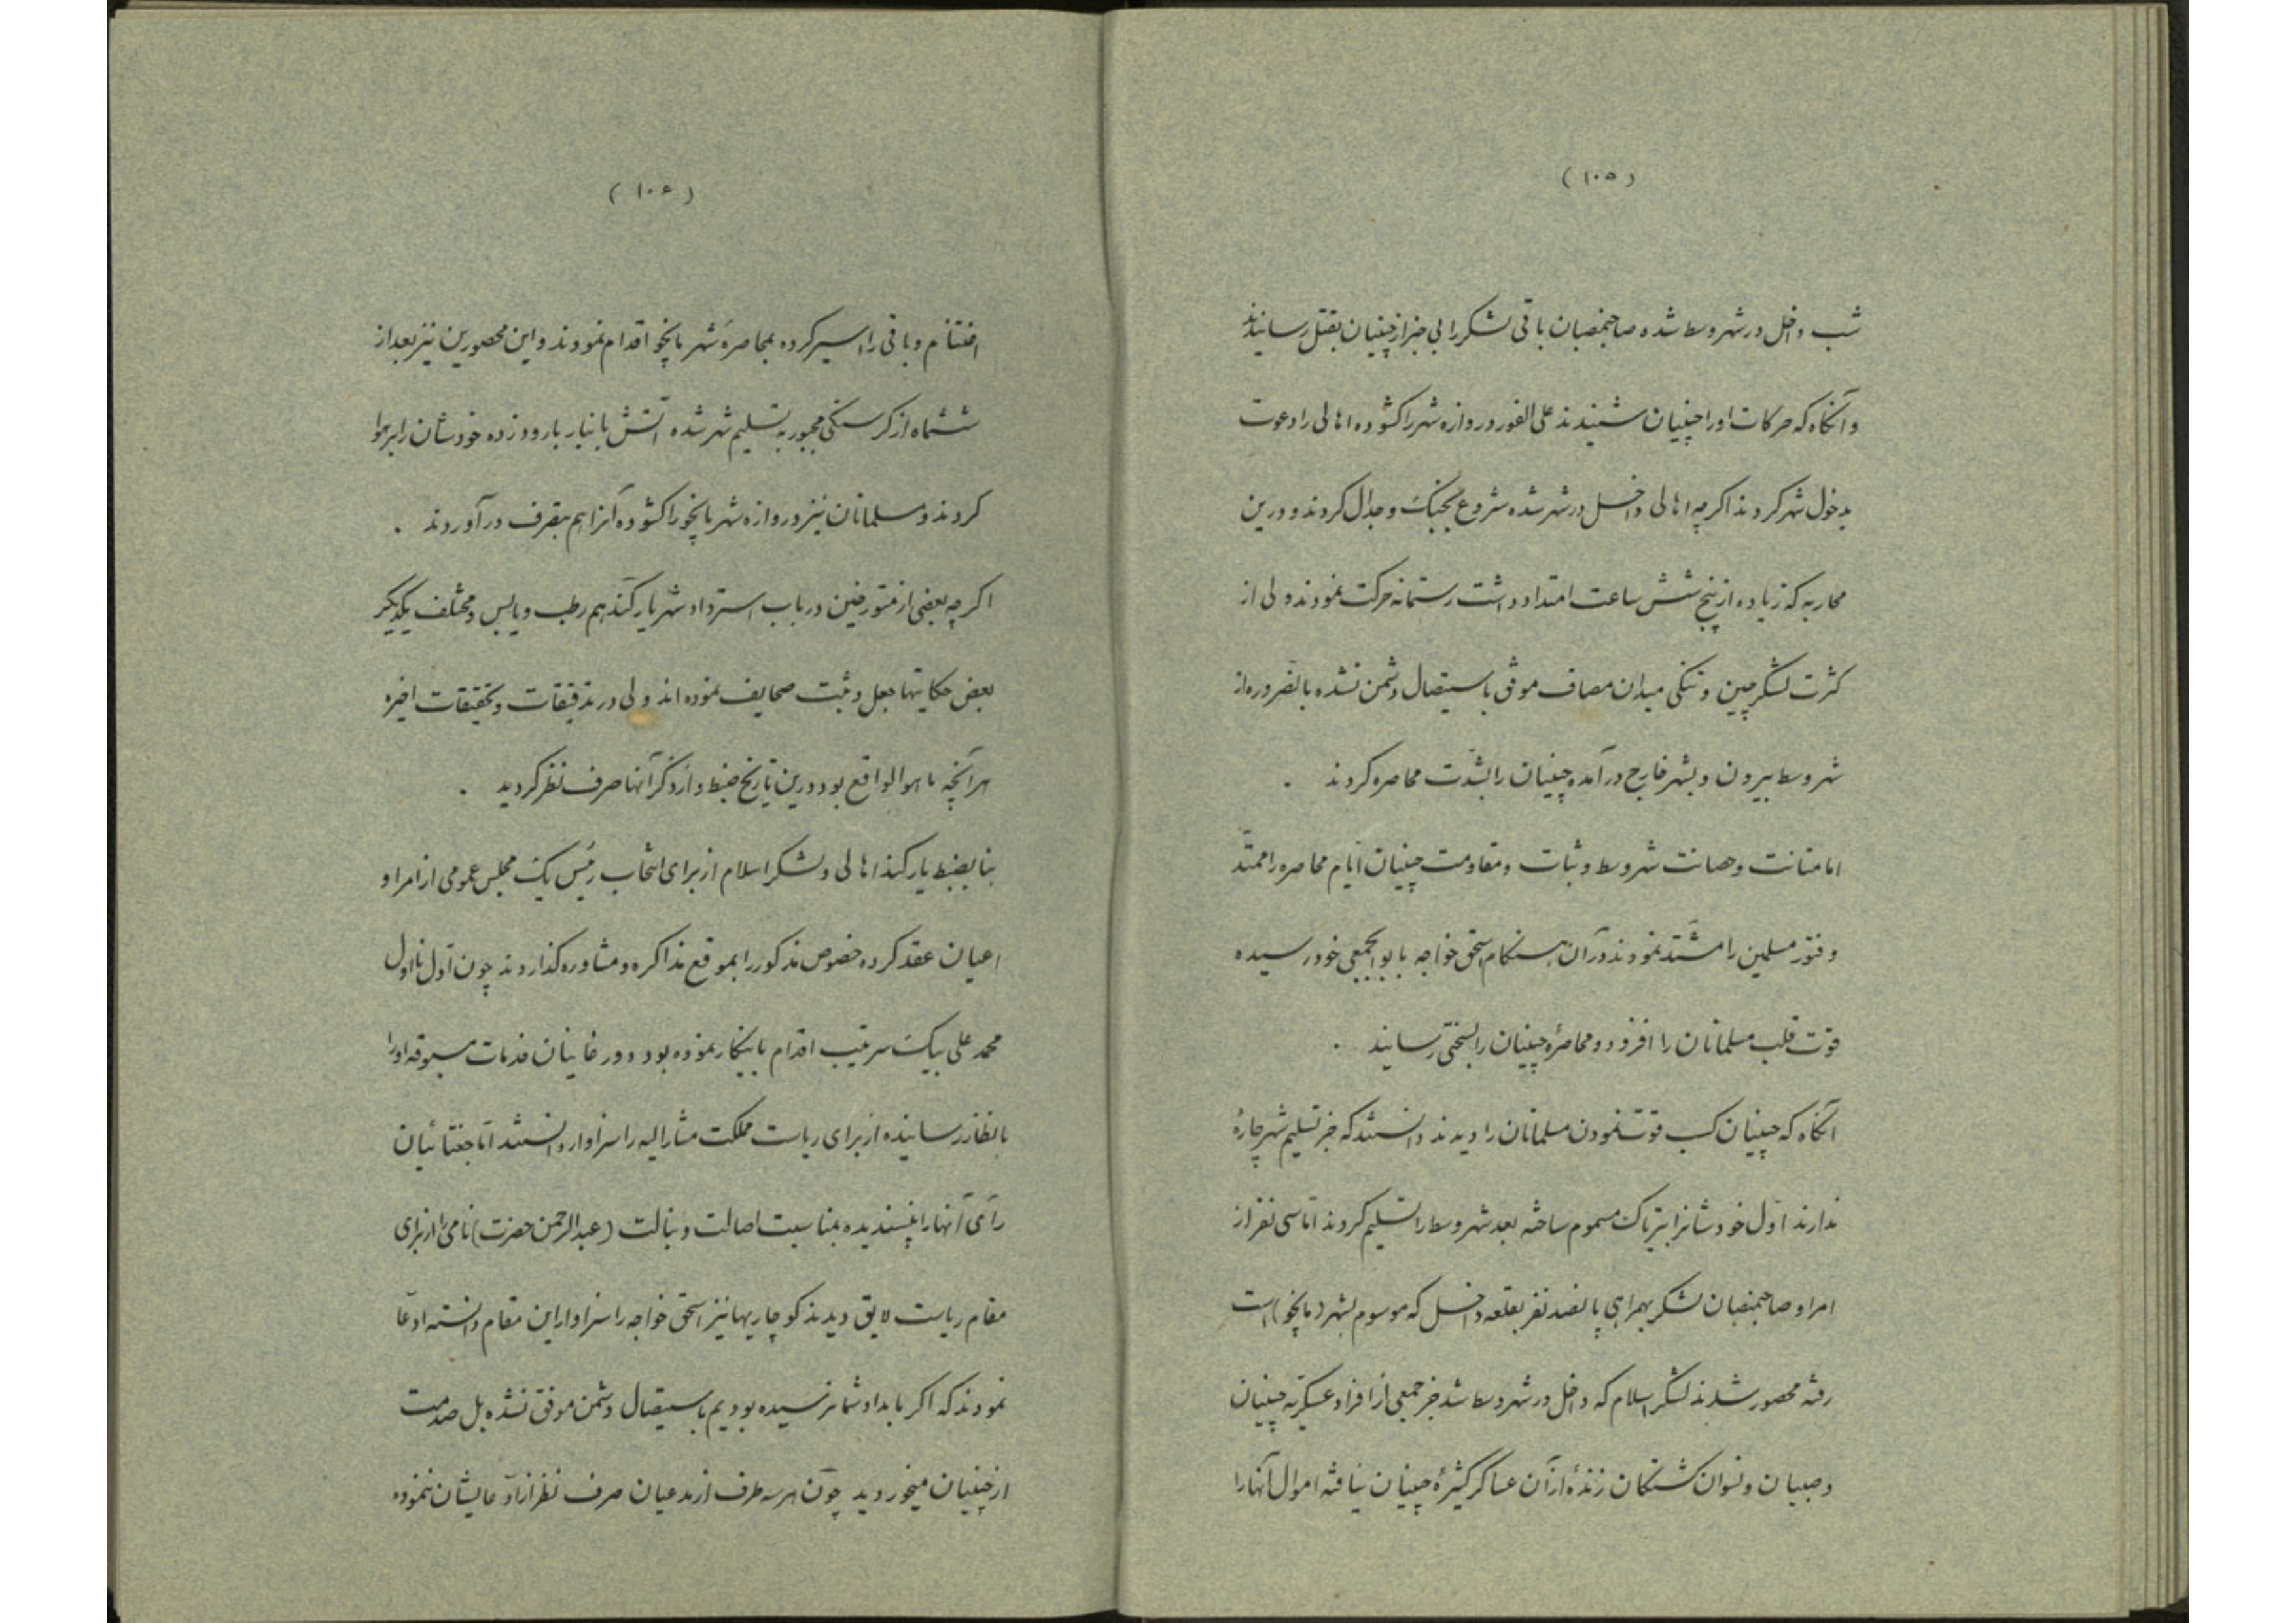 (۱۰۵)
شب داخل در شهر وسط شده صاحبمنصبان باقی لشکر را بی خبر از چینیان بقتل رسانیدند
و آنگاه که حرکات او را چینیان شنیدند علی الفور دروازه شهر را کشوده اهالی را دعوت
بدخول شهر کردند اکرچه اهالی داخل در شهر شده شروع بجنگ و جدال کردند و درین
محاربه که زیاده از پنج شش ساعت امتداد داشت رستمانه حرکت نمودند ولی از
کثرت لشکر چین و تنکی میدان مصاف موفق باستیصال دشمن نشده بالضروره از
شهر وسط بیرون و بشهر خارج در آمده چینیان را بشدت محاصره کردند .
اما متانت و حصانت شهر وسط و ثبات و مقاومت چینیان ایام محاصره را ممتد
و فتور مسلمین را مشتد نمودند در آن هنکام اسحق خواجه با بوالجمعی خود رسیده
قوت قلب مسلمانان را افزود و محاصرهٔ چینیان را بسختی رسانید .
آنگاه که چینیان کسب قوت نمودن مسلمانان را دیدند دانستند که جز تسلیم شهر چارهٔ
ندارند اول خودشانرا بتریاک مسموم ساخته بعد شهر وسط را تسلیم کردند اما سی نفر از
امرا و صاحبمنصبان لشکر بهمراهی پانصد نفر بقلعه داخل که موسوم بشهر (مانچو) است
رفته محصور شدند لشکر اسلام که داخل در شهر وسط شد جز جمعی از افراد عسکریه چینیان
و صبیان و نسوان کشتکان زندهٔ از آن عساکر کثیرهٔ چینیان نیافته اموال آنها را
(۱۰۶)
اغتنام و باقی را اسیر کرده بمحاصرهٔ شهر مانچو اقدام نمودند و این محصورین نیز بعد از
ششماه از کرسنکی مجبور به تسلیم شهر شده آتش بانبار بارود زده خودشان را بر هوا
کردند و مسلمانان نیز دروازه شهر مانچو را کشوده آنرا هم بتصرف در آوردند .
اکرچه بعضی از مورخین در باب استرداد شهر یارکند هم رطب و یابس و مختلف یکدیکر
بعض حکایتها جعل و ثبت صحایف نموده اند ولی در تدقیقات و تحقیقات اخیره
هر آنچه ما هو الواقع بود درین تاریخ ضبط و از ذکر آنها صرف نظر کردید .
بنا بضبط یارکند اهالی و لشکر اسلام از برای انتخاب رئیس یک مجلس عمومی از امرا و
اعیان عقد کرده خصوص مذکور را بموقع مذاکره و مشاوره کذاردند چون اول ما اول
محمد علی بیک سرتیب اقدام باینکار نموده بود دورغانیان خدمات مسبوقه او را
بانظار رسانیده از برای ریاست مملکت مشارالیه را سزاوار دانستند اما جغتائیان
رأی آنها را نپسندیده بمناسبت اصالت و نبالت (عبدالرحمن حضرت) نامی را از برای
مقام ریاست لایق دیدند کوچاریها نیز اسحق خواجه را سزاوار این مقام دانسته ادعا
نمودند که اکر ما بداد شما نرسیده بودیم باستیصال دشمن موفق نشده بل صدمت
از چینیان میخوردید چون هر سه طرف از مدعیان صرف نظر از ادعایشان ننموده